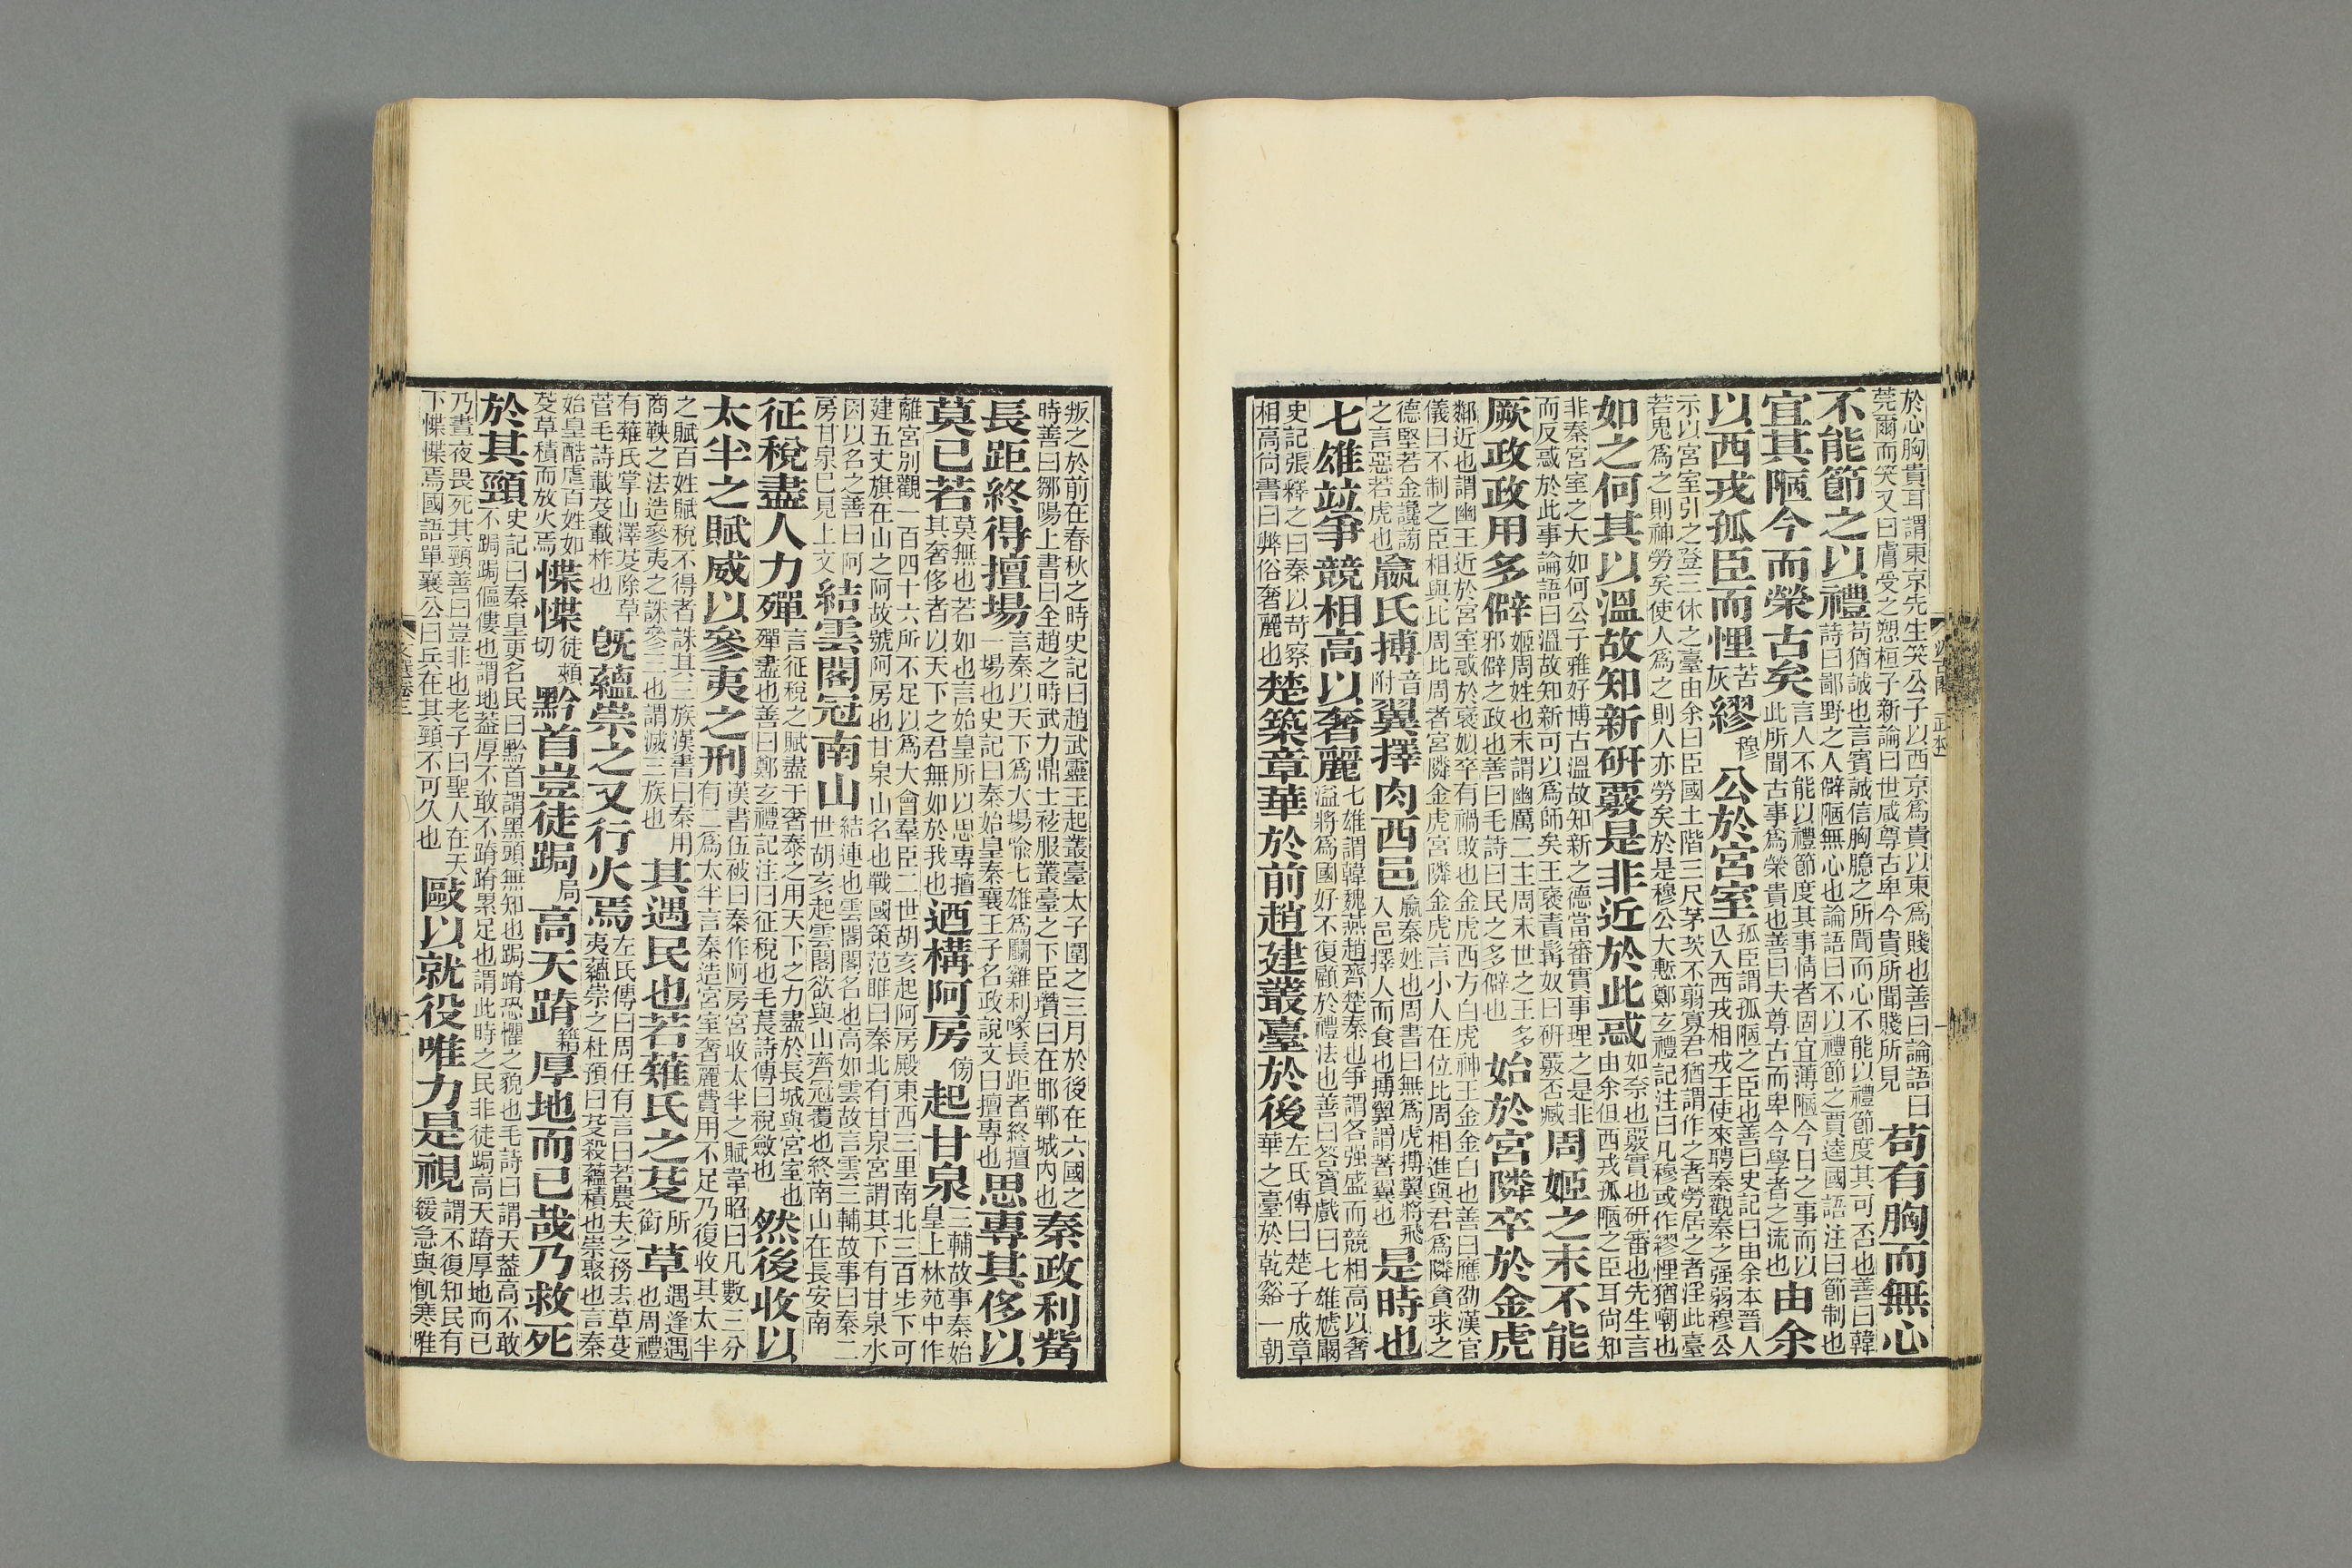 於心胸貴耳謂東京先生笑公子以西京爲貴以東爲賤也善曰論語曰
莞爾而笑又曰膚受之愬桓子新論曰世咸尊古卑今貴所聞賤所見
苟有胸而無心
不能節之以禮
苟猶誠也言賓誠信胸臆之所聞而心不能以禮節度其可否也善曰韓
詩曰鄙野之人僻陋無心也論語曰不以禮節之賈逵國語注曰節制也
宜其陋今而榮古矣
言人不能以禮節度其事情者固宜薄陋今日之事而以
此所聞古事爲榮貴也善曰夫尊古而卑今學者之流也
由余
以西戎孤臣而悝苦灰繆穆公於宮室
孤臣謂孤陋之臣也善曰史記曰由余本晉人
亡入西戎相戎王使來聘秦觀秦之强弱穆公
示以宮室引之登三休之臺由余曰臣國土階三尺茅茨不翦寡君猶謂作之者勞居之者淫此臺
若鬼爲之則神勞矣使人爲之則人亦勞矣於是穆公大慙鄭玄禮記注曰凡穆或作繆悝猶嘲也
如之何其以溫故知新研覈是非近於此惑
如奈也覈實也研審也先生言
由余但西戎孤陋之臣耳尚知
非秦宮室之大如何公子雅好博古溫故知新之德當審實事理之是非
而反惑於此事論語曰溫故知新可以爲師矣王褒責髯奴曰研覈否臧
周姬之末不能
厥政政用多僻
姬周姓也末謂幽厲二王周末世之王多
邪僻之政也善曰毛詩曰民之多僻也
始於宮隣卒於金虎
鄰近也謂幽王近於宮室惑於褒姒卒有禍敗也金虎西方白虎神王金金白也善曰應劭漢官
儀曰不制之臣相與比周比周者宮隣金虎宮隣金虎言小人在位比周相進與君爲隣貪求之
德堅若金讒謗
之言惡若虎也
嬴氏搏音附翼擇肉西邑
嬴秦姓也周書曰無爲虎搏翼將飛
入邑擇人而食也搏翼謂著翼也
是時也
七雄竝爭競相高以奢麗
七雄謂韓魏燕趙齊楚秦也爭謂各强盛而競相高以奢
溢將爲國好不復顧於禮法也善曰答賓戲曰七雄虓闞
史記張釋之曰秦以苛察
相高尚書曰弊俗奢麗也
楚築章華於前趙建叢臺於後
左氏傳曰楚子成章
華之臺於乾谿一朝
叛之於前在春秋之時史記曰趙武靈王起叢臺太子圍之三月於後在六國之
時善曰鄒陽上書曰全趙之時武力鼎士袨服叢臺之下臣瓚曰在邯鄲城內也
秦政利觜
長距終得擅場
言秦以天下爲大場喩七雄爲鬭雞利喙長距者終擅
一場也史記曰秦始皇秦襄王子名政說文曰擅專也
思專其侈以
莫已若
莫無也若如也言始皇所以思專擅
其奢侈者以天下之君無如於我也
迺構阿房傍起甘泉
三輔故事秦始
皇上林苑中作
離宮別觀一百四十六所不足以爲大會羣臣二世胡亥起阿房殿東西三里南北三百步下可
建五丈旗在山之阿故號阿房也甘泉山名也戰國策范雎曰秦北有甘泉宮謂其下有甘泉水
因以名之善曰阿
房甘泉已見上文
結雲閣冠南山
結連也雲閣閣名也高如雲故言雲三輔故事曰秦二
世胡亥起雲閣欲與山齊冠覆也終南山在長安南
征稅盡人力殫
言征稅之賦盡于奢泰之用天下之力盡於長城與宮室也
殫盡也善曰鄭玄禮記注曰征稅也毛萇詩傳曰稅斂也
然後收以
太半之賦威以參夷之刑
漢書伍被曰秦作阿房宮收太半之賦韋昭曰凡數三分
有二爲太半言秦造宮室奢麗費用不足乃復收其太半
之賦百姓賦稅不得者誅其三族漢書曰秦用
商鞅之法造參夷之誅參三也謂滅三族也
其遇民也若薙氏之芟所銜草
遇逢遇
也周禮
有薙氏掌山澤芟除草
菅毛詩載芟載柞也
旣蘊崇之又行火焉
左氏傳曰周任有言曰若農夫之務去草芟
夷蘊崇之杜預曰芟殺蘊積也崇聚也言秦
始皇酷虐百姓如
芟草積而放火焉
惵惵徒頰切黔首豈徒跼局高天蹐籍厚地而已哉乃救死
於其頸
史記曰秦皇更名民曰黔首謂黑頭無知也跼蹐恐懼之貌也毛詩曰謂天蓋高不敢
不跼跼傴僂也謂地蓋厚不敢不蹐蹐累足也謂此時之民非徒跼高天蹐厚地而已
乃晝夜畏死其頸善曰豈非也老子曰聖人在天
下惵惵焉國語單襄公曰兵在其頸不可久也
歐以就役唯力是視
謂不復知民有
緩急與飢寒唯